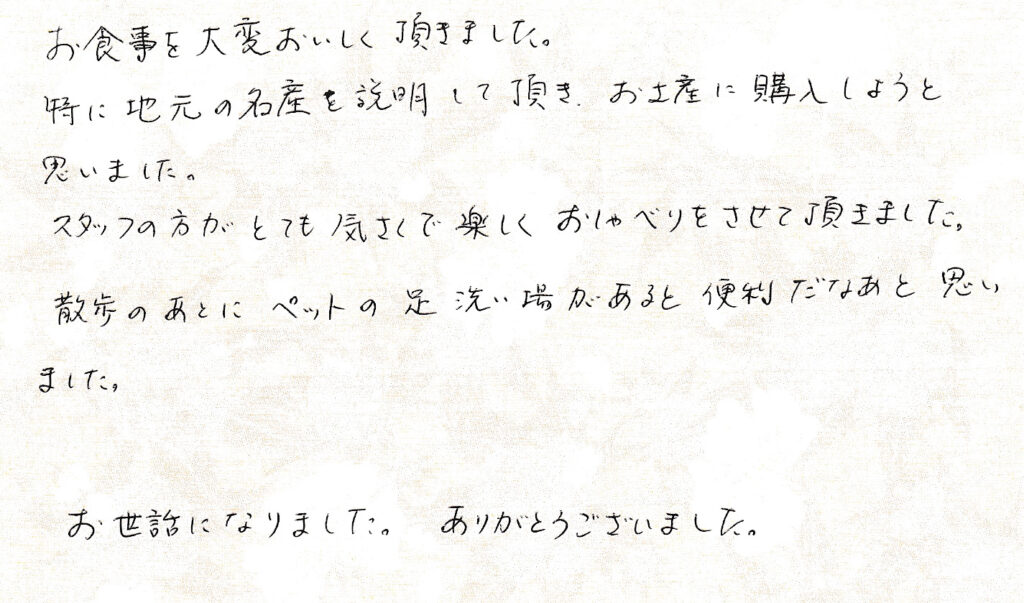 お食事を大変おいしく頂きました。
特に地元の名産を説明して頂き、お土産に購入しようと
思いました。
スタッフの方がとても気さくで楽しくおしゃべりをさせて頂きました。
散歩のあとにペットの足洗い場があると便利だなあと思い
ました。
お世話になりました。 ありがとうございました。